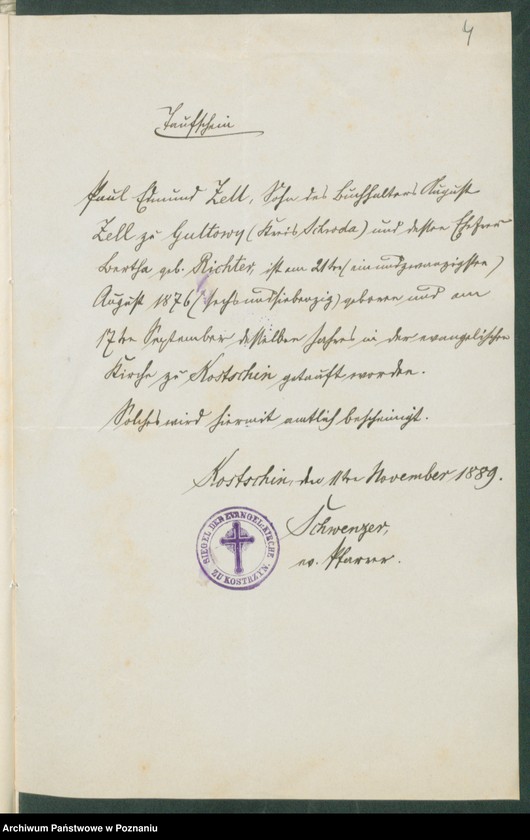 4
Taufschein
Paul Edmund Zell, Sohn des Buchhalters August
Zell zu Gultowy (Kreis Schroda) und dessen Ehefrau
Bertha geb. Richter, ist am 21ten (einundzwanzigsten)
August 1876 (sechsundsiebenzig) geboren und am
17ten September desselben Jahres in der evangelischen
Kirche zu Kostschin getauft worden.
Solches wird hiermit amtlich bescheinigt.
Kostschin, den 11ten November 1889.
Schwenzer,
ev. Pfarrer.
SIEGEL DER EVANGEL: KIRCHE
ZU KOSTRZYN.
Archiwum Państwowe w Poznaniu